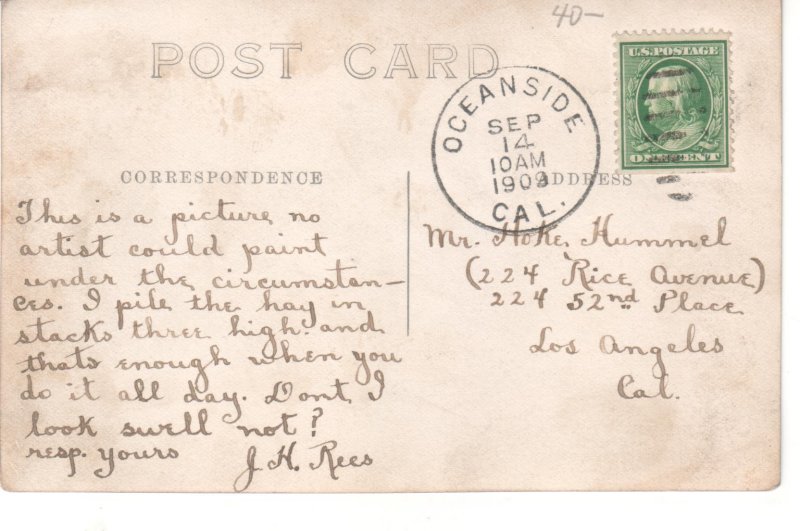 40-
POST CARD
U.S. POSTAGE
ONE CENT
OCEANSIDE
SEP
14
10AM
1909
CAL.
CORRESPONDENCE
ADDRESS
This is a picture no
artist could paint
under the circumstan-
ces. I pile the hay in
stacks three high and
thats enough when you
do it all day. Dont I
look swell not?
resp. yours
J. H. Rees
Mr. Hoke Hummel
(224 Rice Avenue)
224 52nd Place
Los Angeles
Cal.